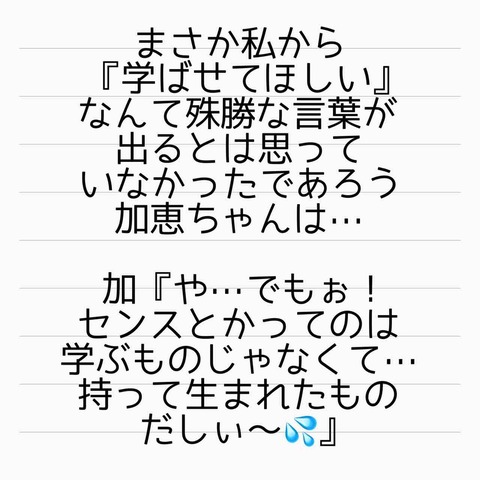 まさか私から
『学ばせてほしい』
なんて殊勝な言葉が
出るとは思って
いなかったであろう
加恵ちゃんは…
加『や…でもぉ！
センスとかってのは
学ぶものじゃなくて…
持って生まれたもの
だしぃ〜💦』